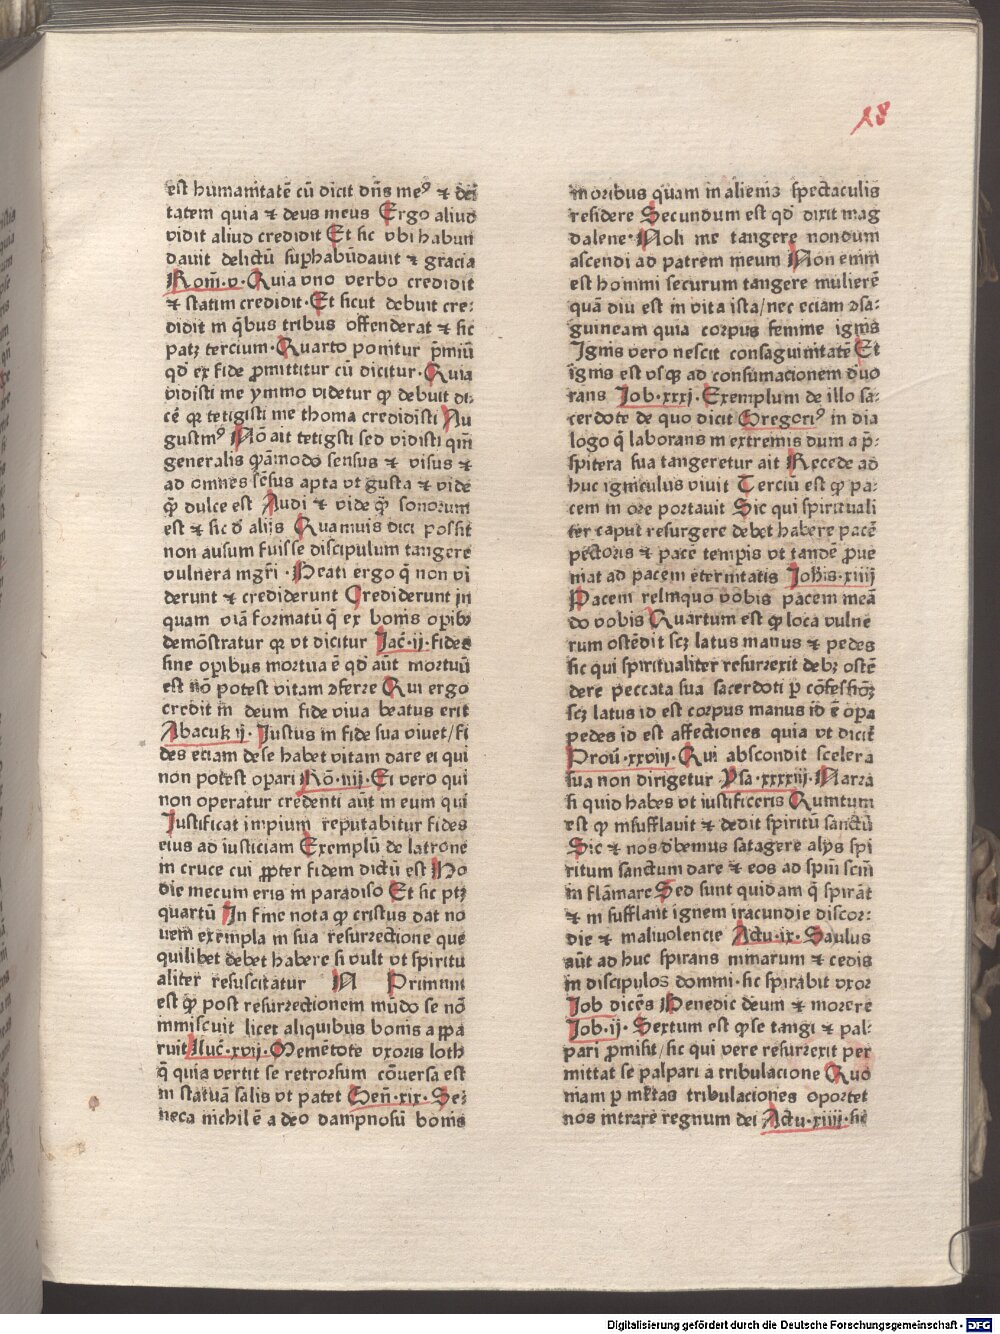 18
est humanitatē cū dicit dn̄s me⁹ ⁊ dei
tatem quia ⁊ deus meus Ergo aliud
vidit aliud credidit Et sic vbi habun
dauit delictū suꝑhabūdauit ⁊ gracia
Rom̄·v·Quia vno verbo credidit
⁊ statim credidit·Et sicut debuit cre⸗
didit in q̄bus tribus offenderat ⁊ sic
patꝫ tercium·Quarto ponitur p̄miū
qd̄ ex fide ꝓmittitur cū dicitur·Quia
vidisti me ymmo videtur ꝙ debuit di⸗
cē qꝛ tetigisti me thoma credidisti Au
gustin⁹ Nō ait tetigisti sed vidisti qm̄
generalis qͣdāmodo sensus ⁊ visus ⁊
ad omnes sēsus apta vt gusta ⁊ vide
q̄ꝫ dulce est Audi ⁊ vide q̄ꝫ sonorum
est ⁊ sic d̄ alijs Quamuis dici possit
non ausum fuisse discipulum tangere
vulnera mgr̄i·Beati ergo q̄ non vi
derunt ⁊ crediderunt Crediderunt in
quam viā formatū q̄ ex bonis opibꝫ
demōstratur ꝙ vt dicitur Jac̄·ij·fides
sine oꝑibus mortua ē qd̄ aūt mortuū
est nō potest vitam ꝯferre Qui ergo
credit in deum fide viua beatus erit
Abacuk ij·Justus in fide sua viuet/fi
des eciam de se habet vitam dare ei qui
non potest opari Rō·iiij·Ei vero qui
non operatur credenti aūt in eum qui
Justificat impium reputabitur fides
eius ad iusticiam Exemplū de latrone
in cruce cui ꝓpter fidem dictū est Ho
die mecum eris in paradiso Et sic ptꝫ
quartū In fine nota ꝙ cristus dat no
uem exempla in sua resurrectione que
quilibet debet habere si vult vt spiritu
aliter resuscitatur IN Primum
est ꝙ post resurrectionem mūdo se nō
immiscuit licet aliquibus bonis appa
ruit Luc̄·xvij·Memētote vxoris loth
q̄ quia vertit se retrorsum cōuersa est
in statuā salis vt patet Gen̄·xix·Se⸗
neca nichil ē a deo dampnosū bonis
moribus quam in alienis spectaculis
residere Secundum est qd̄ dixit mag
dalene·Noli me tangere nondum
ascendi ad patrem meum Non enim
est homini securum tangere mulierē
quā diu est in vita ista/nec eciam ꝯsa⸗
guineam quia corpus femine ignis
Ignis vero nescit consaguinitatē Et
ignis est vsqꝫ ad consumacionem d̄uo
rans Job·xxxj·Exemplum de illo sa⸗
cerdote de quo dicit Gregori⁹ in dia
logo q̄ laborans in extremis dum a p̄s⸗
spitera sua tangeretur ait Recede ad
huc igniculus viuit Terciū est ꝙ pa⸗
cem in ore portauit Sic qui spirituali
ter caput resurgere debet habere pacē
pectoris ⁊ pacē tempis vt tandē ꝑue
niat ad pacem eternitatis Joh̄is·xiiij
Pacem relinquo vobis pacem meā
do vobis Quartum est ꝙ loca vulne
rum ostēdit scꝫ latus manus ⁊ pedes
sic qui spiritualiter resurrexit debꝫ ostē
dere peccata sua sacerdoti ꝑ cōfessionē
scꝫ latus id est corpus manus id ē opa
pedes id est affectiones quia vt dicit̄
Prou̅·xxviij·Qui abscondit scelera
sua non dirigetur Psa·xxxxiij·Narra
si quid habes vt iustificeris Quintum
est ꝙ insufflauit ⁊ dedit spiritū sanctū
Sic ⁊ nos d̄bemus satagere alijs spi
ritum sanctum dare ⁊ eos ad spm̄ scm̄
in flāmare Sed sunt quidam q̄ spirāt
⁊ in sufflant ignem iracundie discor⸗
die ⁊ maliuolencie Actu·ix·Saulus
aūt ad huc spirans minarum ⁊ cedis
in discipulos domini·sic spirabit vxor
Job dicēs Benedic deum ⁊ morere
Job·ij·Sextum est ꝙ se tangi ⁊ pal⸗
pari ꝓmisit/sic qui vere resurrexit per
mittat se palpari a tribulacione Quo
niam ꝑ ml̄tas tribulaciones oportet
nos intrare regnum dei Actu·xiiij·sic
Digitalisierung gefördert durch die Deutsche Forschungsgemeinschaft - DFG